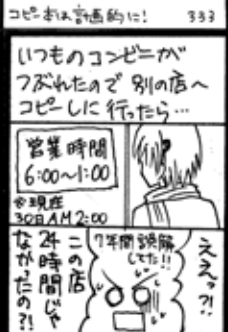 コピー本は計画的に! 333
いつものコンビニが
つぶれたので 別の店へ
コピーしに行ったら…
営業時間
6:00〜1:00
※現在
30日AM2:00
ええっ?!
7年間誤解
してた!!
この店
24時間じゃ
なかったの?!